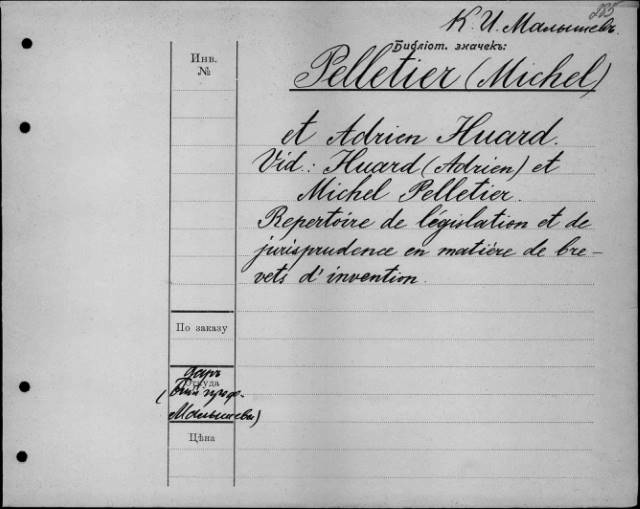 225
К. И. Малышевъ
Библіот. значекъ:
Инв.
№
Pelletier (Michel)
et Adrien Huard.
Vid.: Huard (Adrien) et
Michel Pelletier.
Repertoire de législation et de
jurisprudence en matière de bre-
vets d'invention.
По заказу
Даръ
Откуда
(Библ. проф.
Малышева)
Цѣна